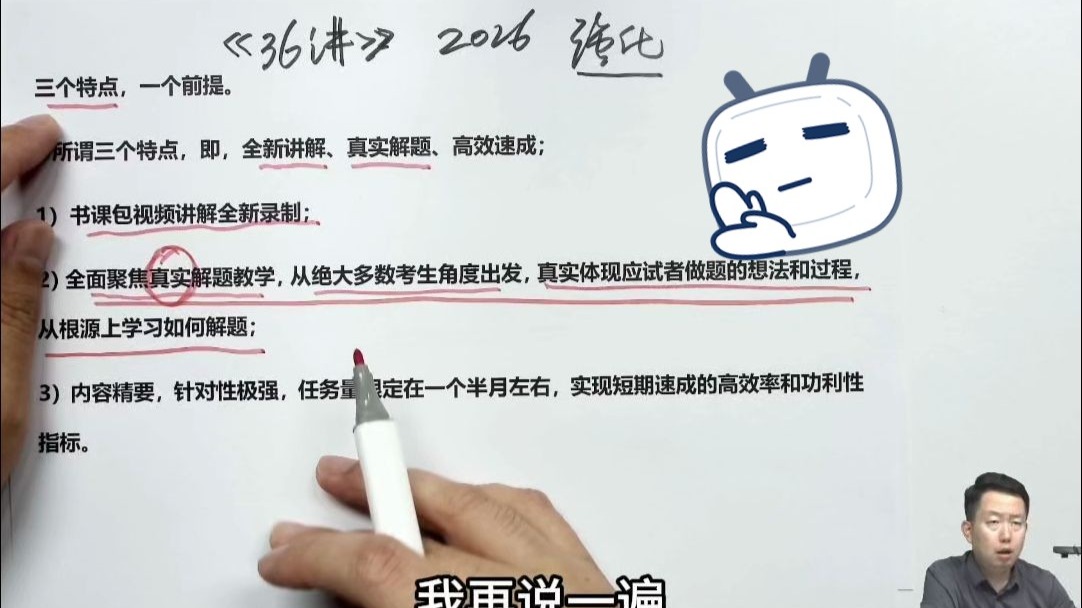 《36讲》 2026 强化
三个特点，一个前提。
所谓三个特点，即，全新讲解、真实解题、高效速成；
1）书课包视频讲解全新录制；
2）全面聚焦真实解题教学，从绝大多数考生角度出发，真实体现应试者做题的想法和过程，
从根源上学习如何解题；
3）内容精要，针对性极强，任务量限定在一个半月左右，实现短期速成的高效率和功利性
指标。
我再说一遍